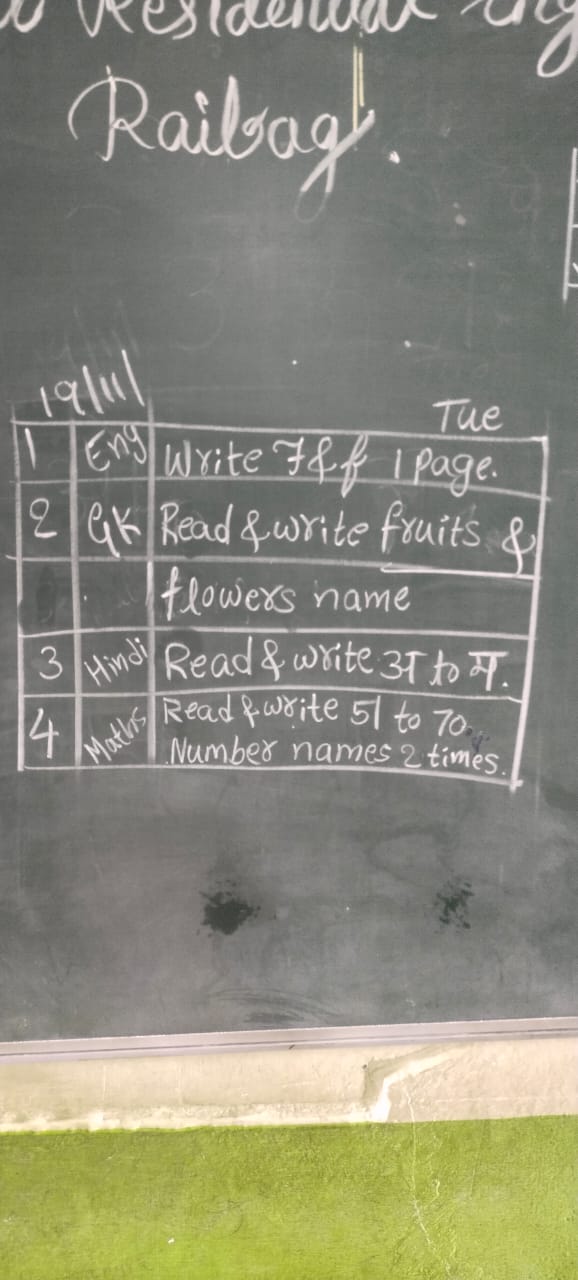 Residential Eng
Raibag.
19/11/ Tue
1 Eng Write F & f 1 page.
2 GK Read & write fruits &
flowers name
3 Hindi Read & write अ to म.
4 Maths Read & write 51 to 70
Number names 2 times.